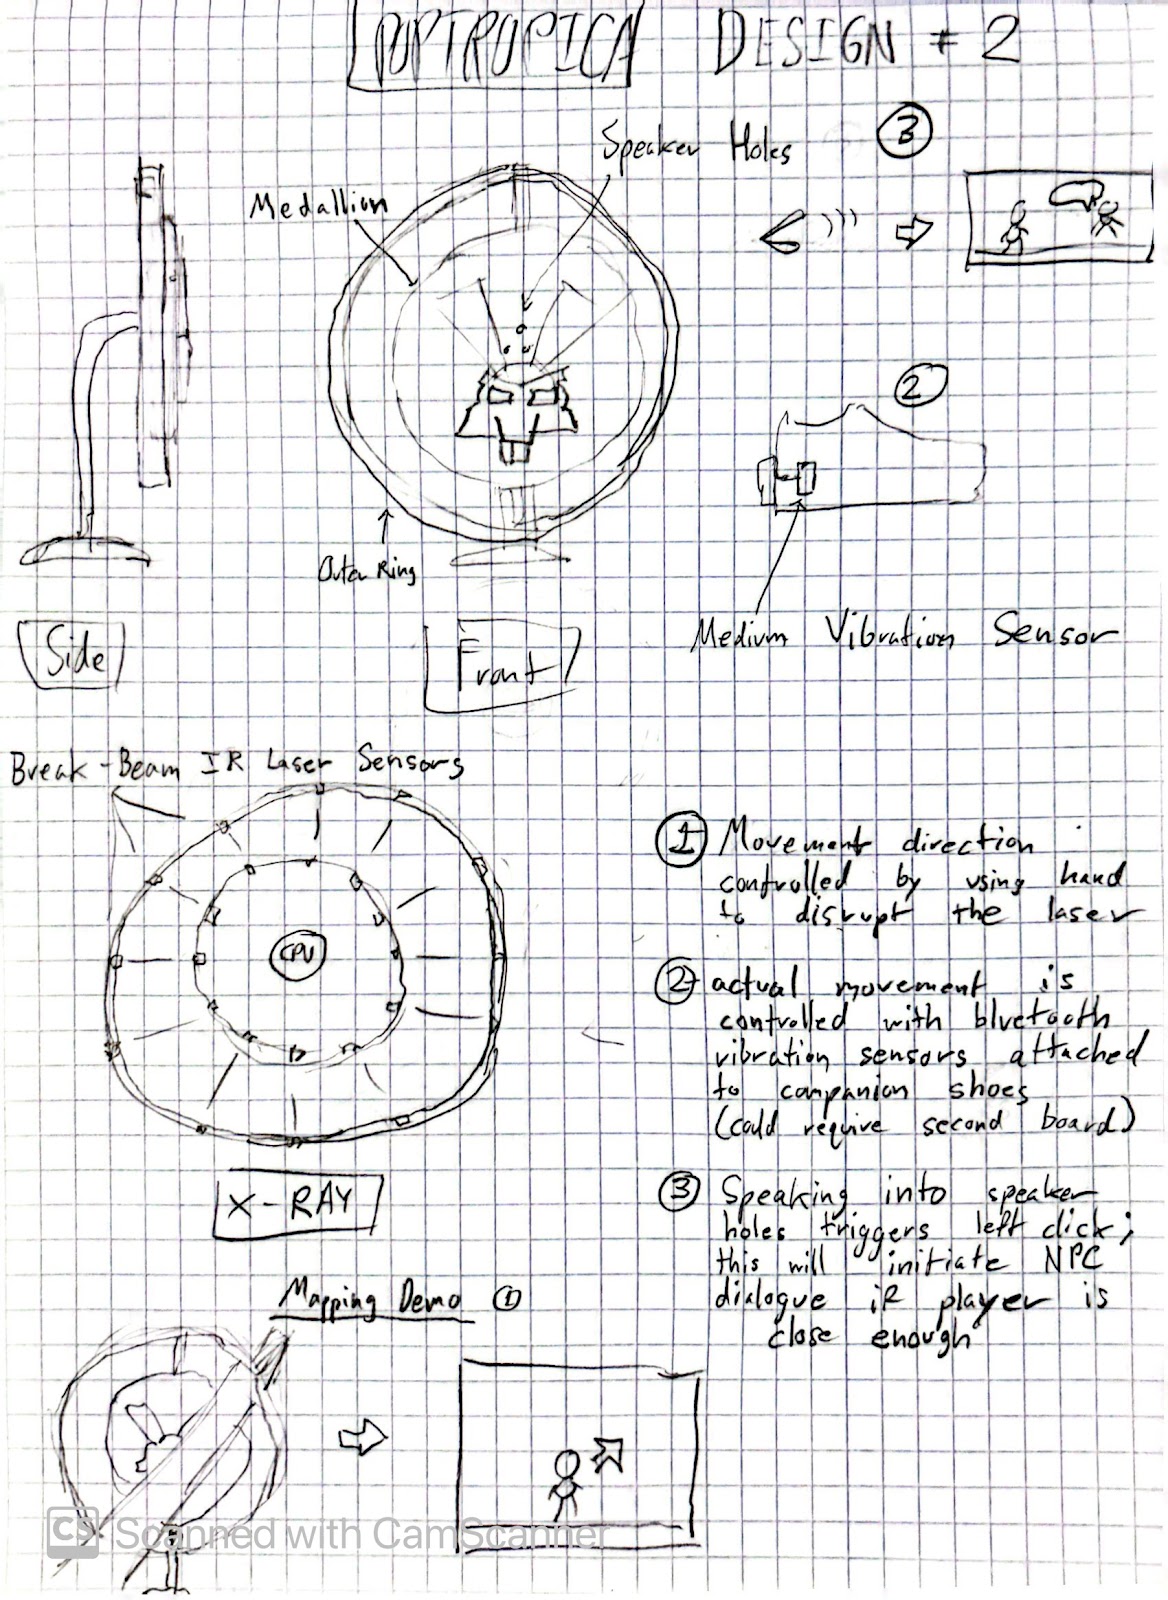 POPTROPICA DESIGN # 2
Speaker Holes
3
Medallion
2
Outer Ring
Medium Vibration Sensor
Side
Front
Break-Beam IR Laser Sensors
CPU
1 Movement direction
controlled by using hand
to disrupt the laser
2 actual movement is
controlled with bluetooth
vibration sensors attached
to companion shoes
(could require second board)
X-RAY
3 Speaking into speaker
holes triggers left click;
this will initiate NPC
dialogue if player is
close enough
Mapping Demo 1
CS Scanned with CamScanner